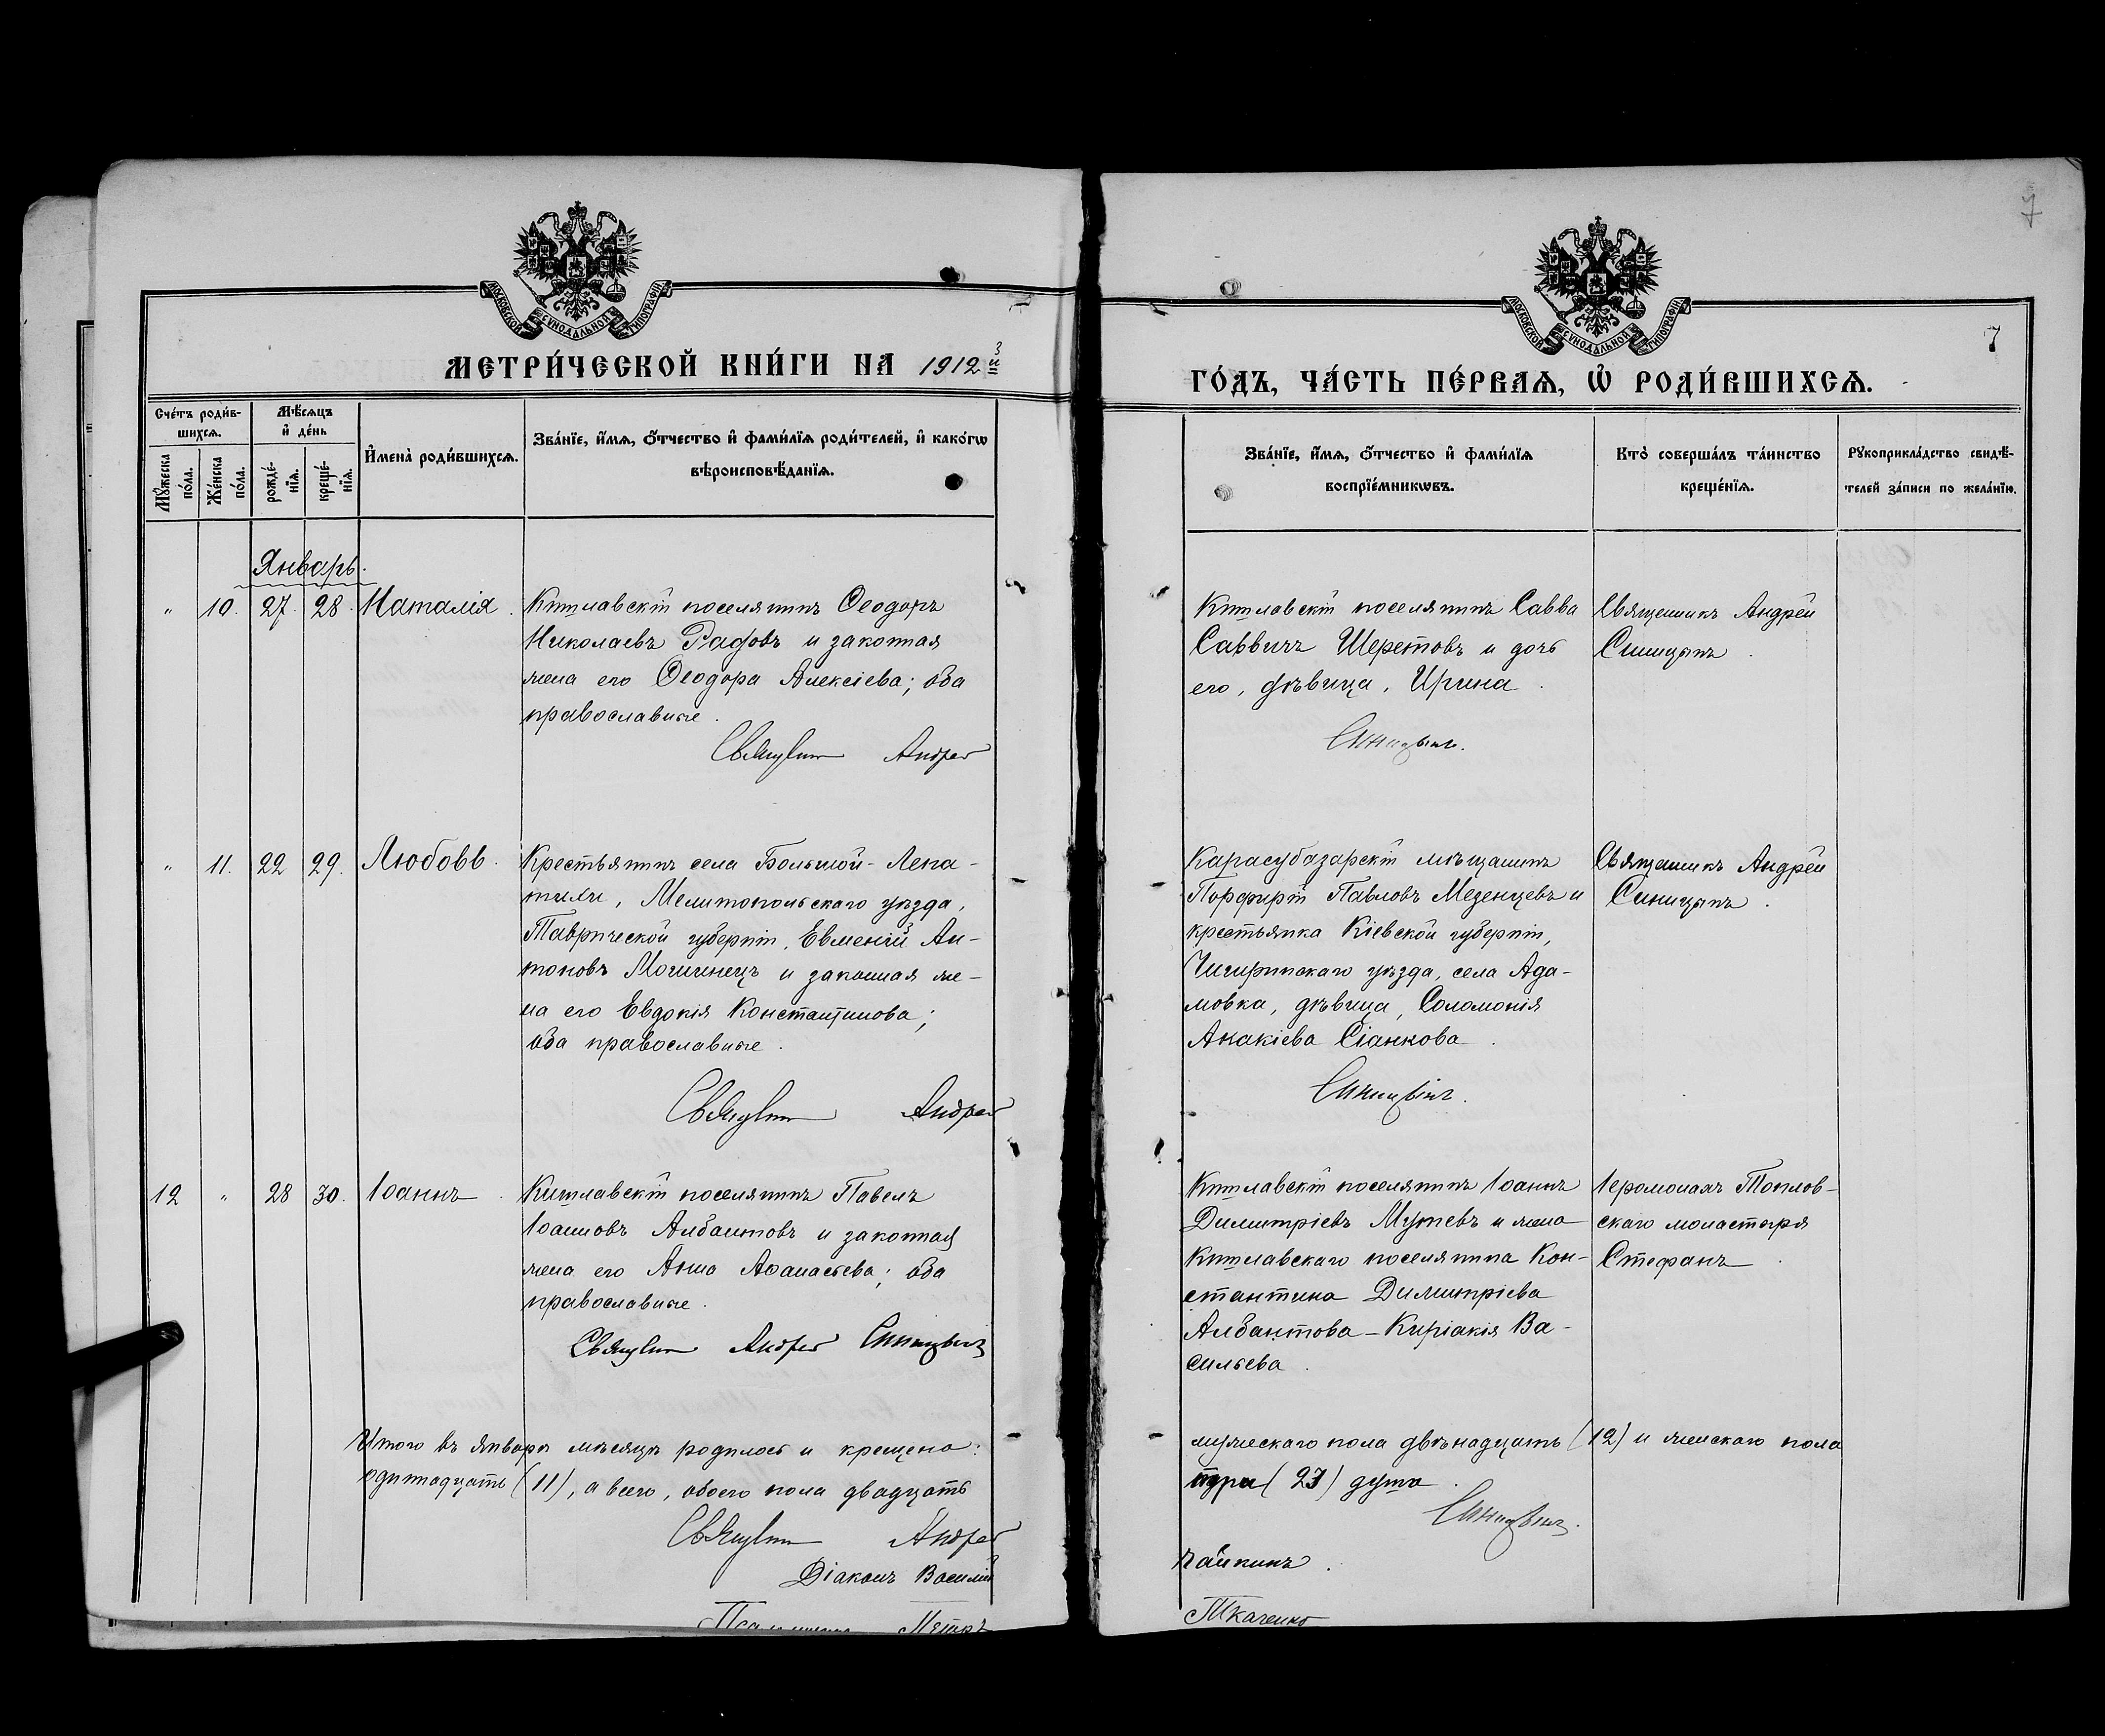 МОСКОВСКОЙ СѴНОДАЛЬНОЙ ТИПОГРАФІИ
МЕТРИ́ЧЕСКОЙ КНИ́ГИ НА 1912й
Сче́тъ роди́в-
шихсѧ.
Мѣ́сѧцъ
и҆ де́нь
Мꙋ́жеска
по́ла.
Же́нска
по́ла.
рожде́-
нїѧ.
креще́-
нїѧ.
И҆мена̀ роди́вшихсѧ.
Зва́нїе, и҆́мѧ, ѻ҆́тчество и҆ фами́лїѧ роди́телей, и҆ како́гѡ
вѣроисповѣ́данїѧ.
Январь.
" 10. 27. 28. Наталія.
Кишлавскій поселянинъ Ѳеодоръ
Николаевъ Рафовъ и законная
жена его Ѳеодора Алексіева; оба
православные.
Священникъ Андрей
" 11. 22 29. Любовь.
Крестьянинъ села Большой-Лепа-
тихи, Мелитопольскаго уѣзда,
Таврической губерніи, Евменій Ан-
тоновъ Могинецъ и законная же-
на его Евдокія Константинова;
оба православные.
Священникъ Андрей
12 " 28 30. Іоаннъ.
Кишлавскій поселянинъ Павелъ
Іоанновъ Албантовъ и законная
жена его Анна Аѳанасьева; оба
православные.
Священникъ Андрей Синицынъ
Итого въ январѣ мѣсяцѣ родилось и крещено:
одиннадцать (11), а всего, обоего пола двадцать
Священникъ Андрей
Діаконъ Василій
Псаломщикъ Петръ
7
7
МОСКОВСКОЙ СѴНОДАЛЬНОЙ ТИПОГРАФІИ
ГО́ДЪ, ЧА́СТЬ ПЕ́РВАѦ, Ѡ҆ РОДИ́ВШИХСѦ.
Зва́нїе, и҆́мѧ, ѻ҆́тчество и҆ фами́лїѧ
воспрїе́мникѡвъ.
Кто̀ соверша́лъ та́инство
креще́нїѧ.
Рꙋкоприкла́дство свидѣ́-
телей за́писи по жела́нїю.
Кишлавскій поселянинъ Савва
Саввичъ Шеретовъ и дочь
его, дѣвица, Ирина.
Синицынъ.
Священникъ Андрей
Синицынъ.
Карасубазарскій мѣщанинъ
Порфирій Павловъ Мезенцевъ и
крестьянка Кіевской губерніи,
Чигиринскаго уѣзда, села Ада-
мовка, дѣвица, Соломонія
Акакіева Сіанкова.
Синицынъ.
Священникъ Андрей
Синицынъ.
Кишлавскій поселянинъ Іоаннъ
Димитріевъ Мутевъ и жена
Кишлавскаго поселянина Кон-
стантина Димитріева
Албантова - Киріакія Ва-
сильева.
Іеромонахъ Топлов-
скаго монастыря
Стефанъ.
мужескаго пола двѣнадцать (12) и женскаго пола
три (23) душа.
Синицынъ.
Чайкинъ.
Ткаченко